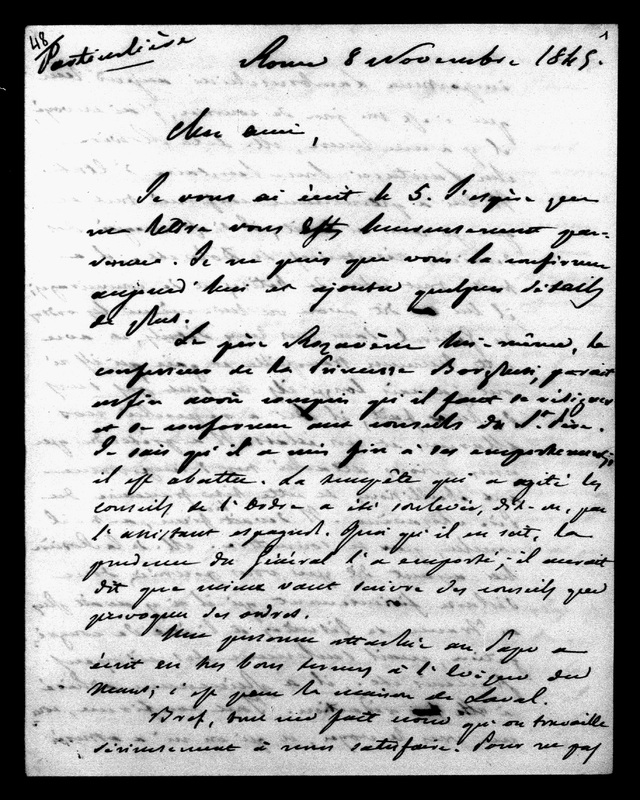 48
Particulière
1
Rome 8 Novembre 1845.
Cher ami,
Je vous ai écrit le 5. J'espère que
ma lettre vous est heureusement par-
venue. Je ne puis que vous la confirmer
aujourd'hui et ajouter quelques détails
de plus.
Le père Rozavène lui-même, le
confesseur de la Princesse Borghese, paraît
enfin avoir compris qu'il faut se résigner
et se conformer aux conseils du St. Père.
Je sais qu'il a mis fin à ses emportements;
il est abattu. La tempête qui a agité les
conseils de l'Ordre a été soulevée, dit-on, par
l'assistant espagnol. Quoi qu'il en soit, la
prudence du Général l'a emporté; il aurait
dit que mieux vaut suivre des conseils que
provoquer des ordres.
Une personne attachée au Pape a
écrit en ces bons termes à l'évêque du
Mans; c'est pour la maison de Laval.
Bref, tout me fait croire qu'on travaille
sérieusement à nous satisfaire. Pour ne pas